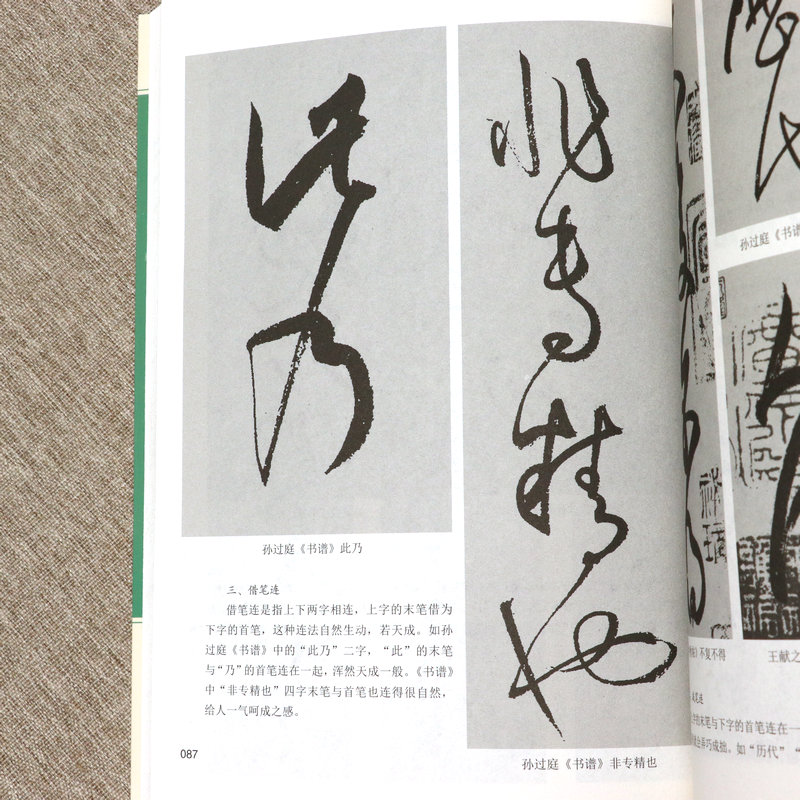 此乃
非专精也
孙过庭《书谱》此乃
三、借笔连
借笔连是指上下两字相连，上字的末笔借为
下字的首笔，这种连法自然生动，若天成。如孙
过庭《书谱》中的“此乃”二字，“此”的末笔
与“乃”的首笔连在一起，浑然天成一般。《书谱》
中“非专精也”四字末笔与首笔也连得很自然，
给人一气呵成之感。
087
孙过庭《书谱》非专精也
孙过庭《书谱
》不复不得
王献之
笔连
的末笔与下字的首笔连在一
弄巧成拙。如“历代”“